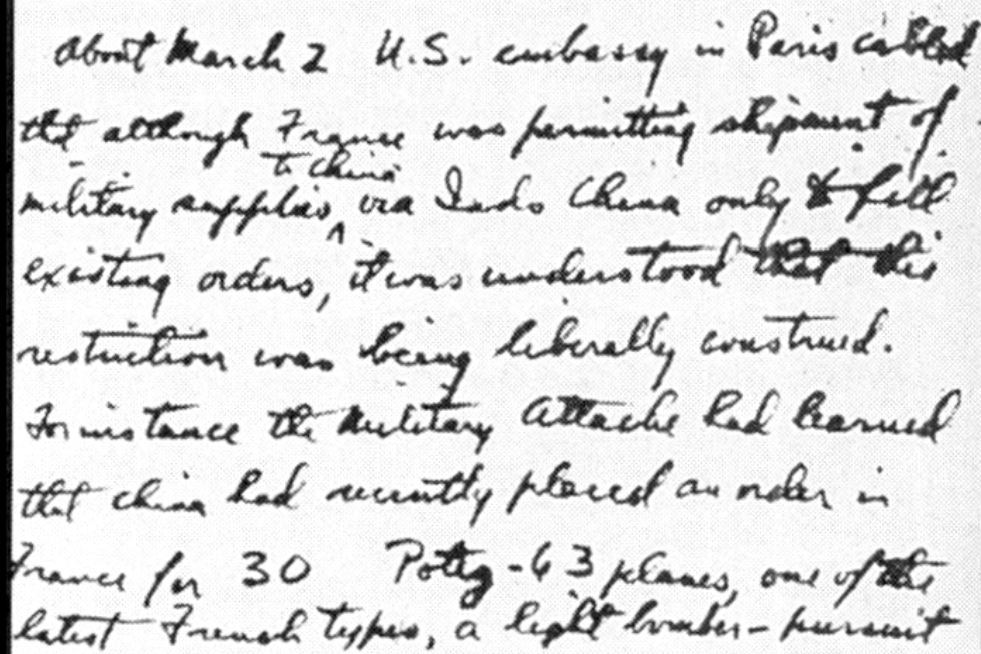 About March 2 U.S. embassy in Paris cabled
tht although France was permitting shipment of
to China
military supplies, via Indo China only to fill
existing orders, it was understood that this
restriction was being liberally construed.
For instance the Military Attache had learned
tht China had recently placed an order in
France for 30 Potez-63 planes, one of the
latest French types, a light bomber-pursuit